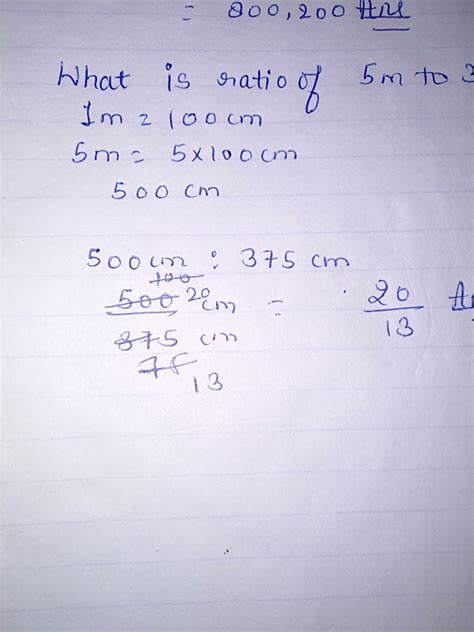 = 800,200 Ans
What is ratio of 5m to 3
1m = 100cm
5m = 5x100cm
500 cm
500cm : 375 cm
100
500 20 cm = 20
375 cm 13
75
13